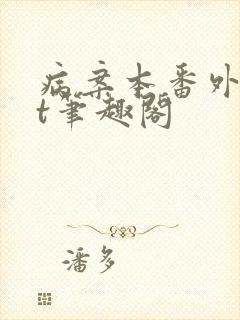 病案本番外
t笔趣阁
潘多